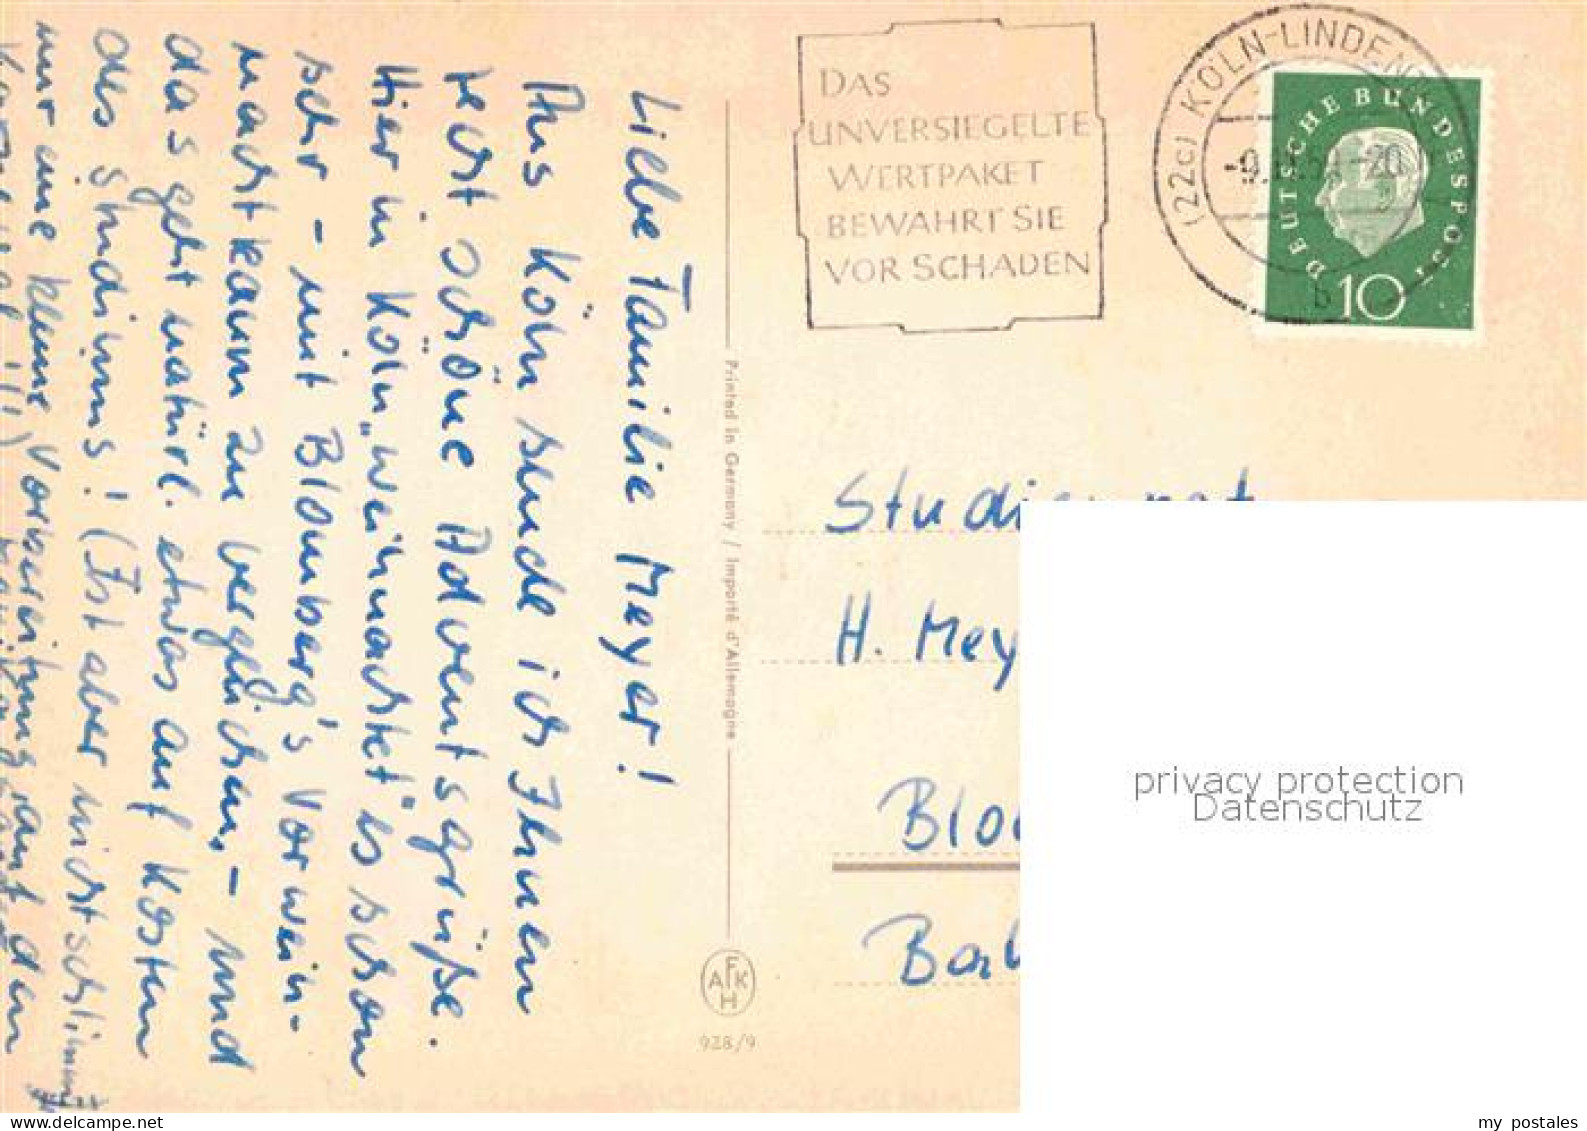 Liebe Familie Meyer!
Aus Köln sende ich Ihnen
recht schöne Adventsgrüße.
Hier in Köln „weihnachtet" es schon
sehr – mit Blomberg's Vorweih-
nacht kaum zu vergleichen, – und
das geht natürl. etwas auf Kosten
des Studiums! (Ist aber nicht schlimm,
nur eine kleine Vorbereitung auf den
DAS
UNVERSIEGELTE
WERTPAKET
BEWAHRT SIE
VOR SCHADEN
(22c) KÖLN-LINDEN
-9. -20
b
DEUTSCHE BUNDESPOST
10
Printed in Germany / Importé d'Allemagne
AFKH
928/9
Studienrat
H. Mey
Blo
privacy protection
Datenschutz
my postales